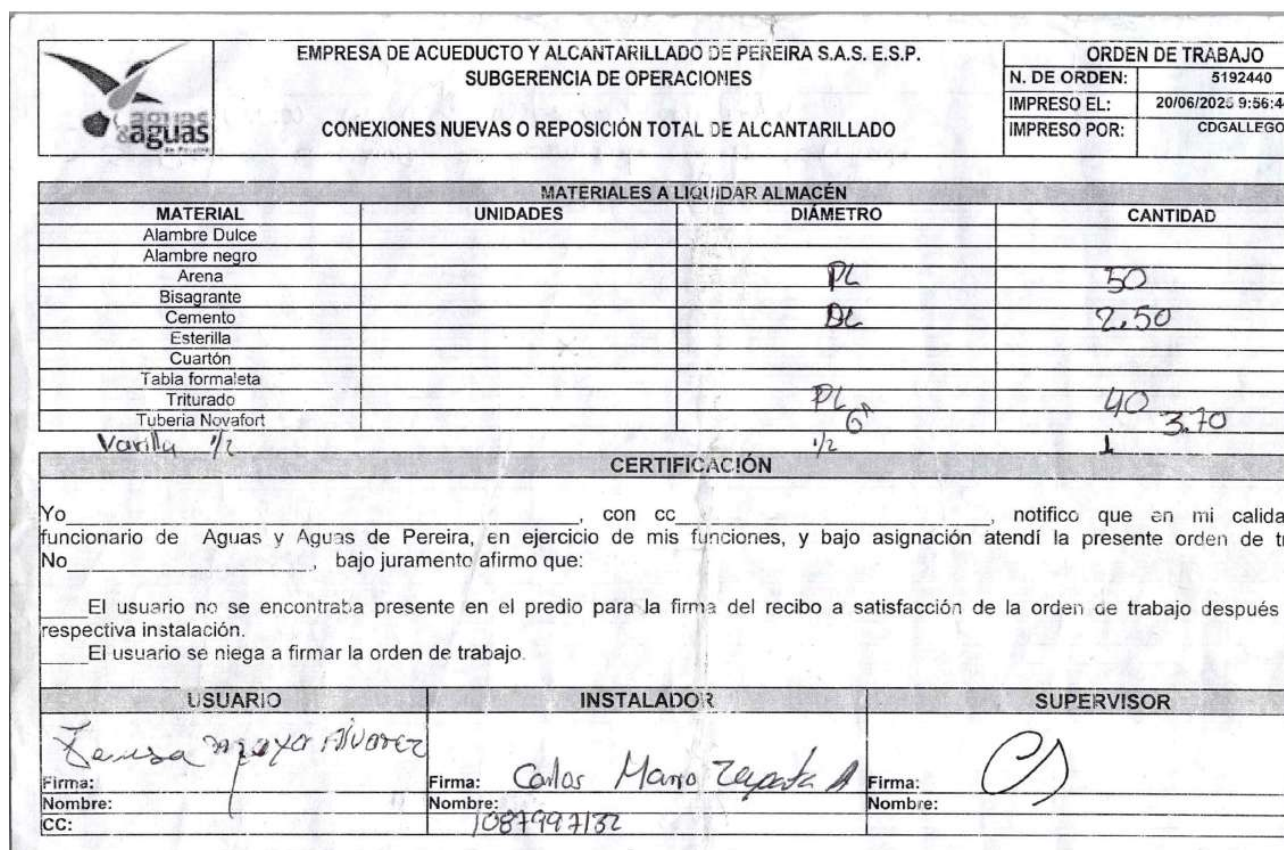 EMPRESA DE ACUEDUCTO Y ALCANTARILLADO DE PEREIRA S.A.S. E.S.P.
SUBGERENCIA DE OPERACIONES
CONEXIONES NUEVAS O REPOSICIÓN TOTAL DE ALCANTARILLADO
aguas
&aguas
de Pereira
ORDEN DE TRABAJO
N. DE ORDEN: 5192440
IMPRESO EL: 20/06/2025 9:56:4
IMPRESO POR: CDGALLEGO
MATERIALES A LIQUIDAR ALMACÉN
MATERIAL UNIDADES DIÁMETRO CANTIDAD
Alambre Dulce
Alambre negro
Arena PL 50
Bisagrante
Cemento DL 2.50
Esterilla
Cuartón
Tabla formaleta
Triturado PL 40
Tuberia Novafort 6" 3.70
Varilla 1/2 1/2 1
CERTIFICACIÓN
Yo, con cc, notifico que en mi calida
funcionario de Aguas y Aguas de Pereira, en ejercicio de mis funciones, y bajo asignación atendí la presente orden de tr
No, bajo juramento afirmo que:
El usuario no se encontraba presente en el predio para la firma del recibo a satisfacción de la orden de trabajo después
respectiva instalación.
El usuario se niega a firmar la orden de trabajo.
USUARIO INSTALADOR SUPERVISOR
Firma: Alvarez
Firma: Carlos Mario Zapata A
Firma:
Nombre: Nombre: Nombre:
CC: 1087997132